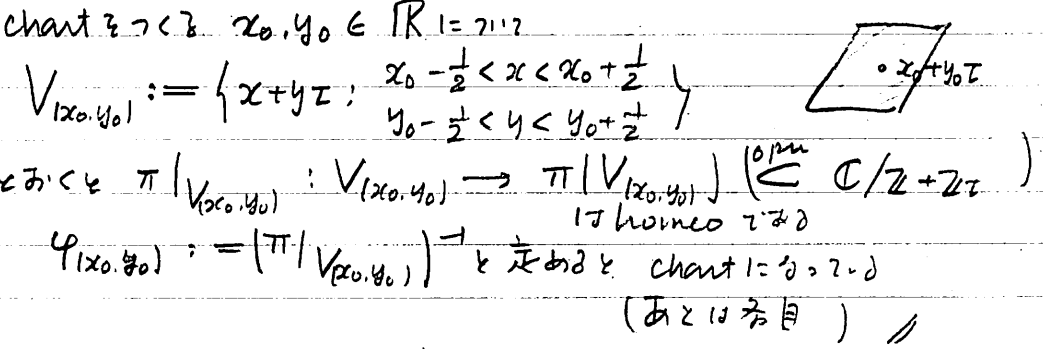 chart をつくる. x₀, y₀ ∈ ℝ について
V_(x₀,y₀) := { x+yτ ; x₀ - 1/2 < x < x₀ + 1/2, y₀ - 1/2 < y < y₀ + 1/2 }
x₀+y₀τ
とおくと π|_V_(x₀,y₀) : V_(x₀,y₀) → π(V_(x₀,y₀)) (⊂ open ℂ/ℤ+ℤτ)
は homeo である
φ_(x₀,y₀) := (π|_V_(x₀,y₀))⁻¹ と定めると chart になっている
(あとは) //